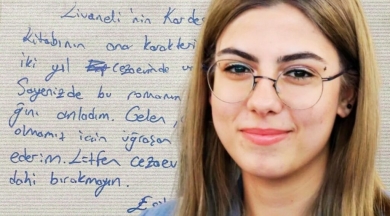 Livaneli'nin Karde
kitabının ana karakteri
iki yıl cezaevinde
Sayenizde bu romanın
ğını anladım. Gelen,
olmamız için uğraşan
ederim. Lütfen cezaev
dahi bırakmayın.